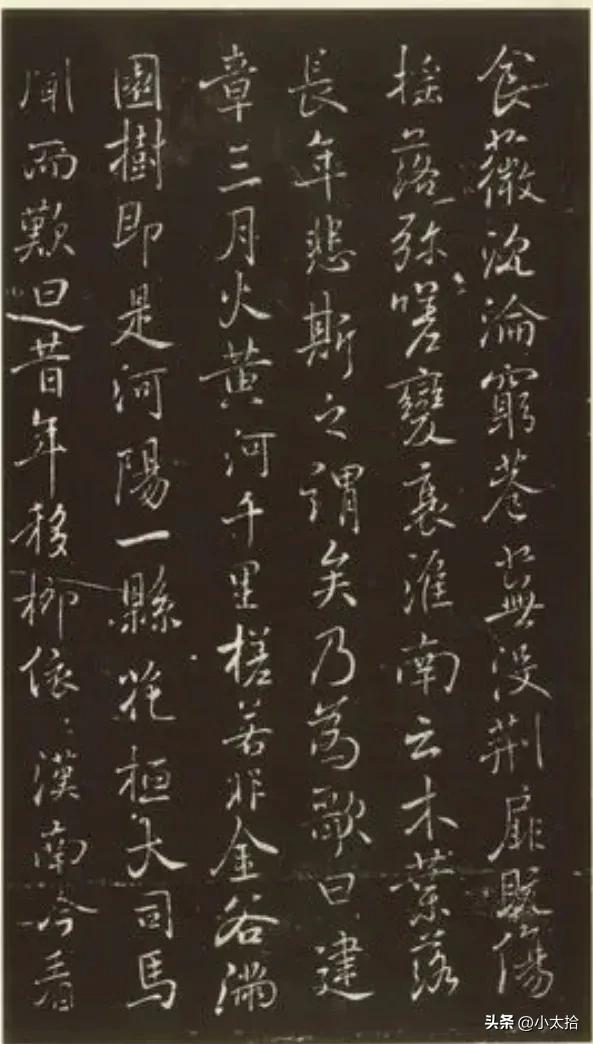 食薇沈淪窮巷蕪没荆扉既傷
揺落弥嗟變衰淮南云木葉落
長年悲斯之謂矣乃為歌曰建
章三月火黄河千里槎若非金谷滿
園樹即是河陽一縣花桓大司馬
聞而歎曰昔年移柳依〻漢南今看
头条 @小太拾